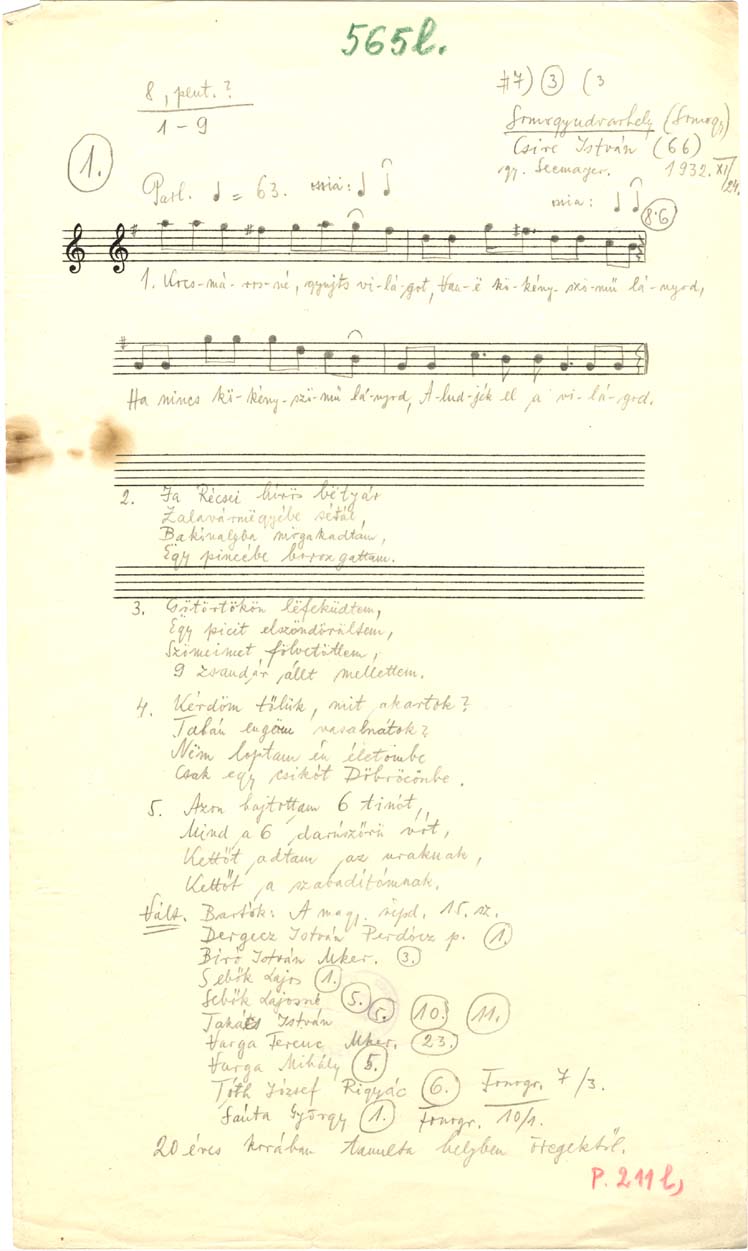 565l.
8, pent.?
1-9
#7) 3 (3
Somogyudvarhely (Somogy)
Csire István (66)
gy. Seemayer. 1932. XI/24.
1.
Parl. ♩ = 63. ossia: ♩ ♩
ossia: ♩ ♩
8·6
1. Kocs-má-ros-né, gyujts vi-lá-got, Van-ë kö-kény-szi-mű lá-nyod,
Ha nincs kö-kény-szi-mű lá-nyod, A-lud-jék el a vi-lá-god.
2. Ja Récsei híröš bëtyár
Zalavármëgyébe sétál,
Egy pincébe borozgattam.
3. Csötörtökön lëfeküdtem,
Egy picit elszöndörültem,
Szömeimet fölvetöttem,
9 zsandár állt mellettem.
4. Kérdöm tőlük, mit akartok?
Talán engöm vasalnátok?
Nëm loptam én életömbe
Csak egy csikót Döbröcönbe.
5. Azon hajtottam 6 tinót,
Mind a 6 darúszőrü vót,
Kettőt adtam az uraknak,
Kettőt a szabadítómnak.
Vált. Bartók: A magy. népd. 15. sz.
Dergecz István Perdócz p. 1.
Biró István Mker. 3.
Sebők Lajos 1.
Sebők Lajosné 5.
Takáts István 5. 10. 11.
Varga Ferenc Mker. 23.
Varga Mihály 5.
Tóth József Rigyác 6. Fonogr. 7/3.
Sánta György 1. Fonogr. 10/1.
20 éves korában tanulta helyben öregektől.
P. 211l,